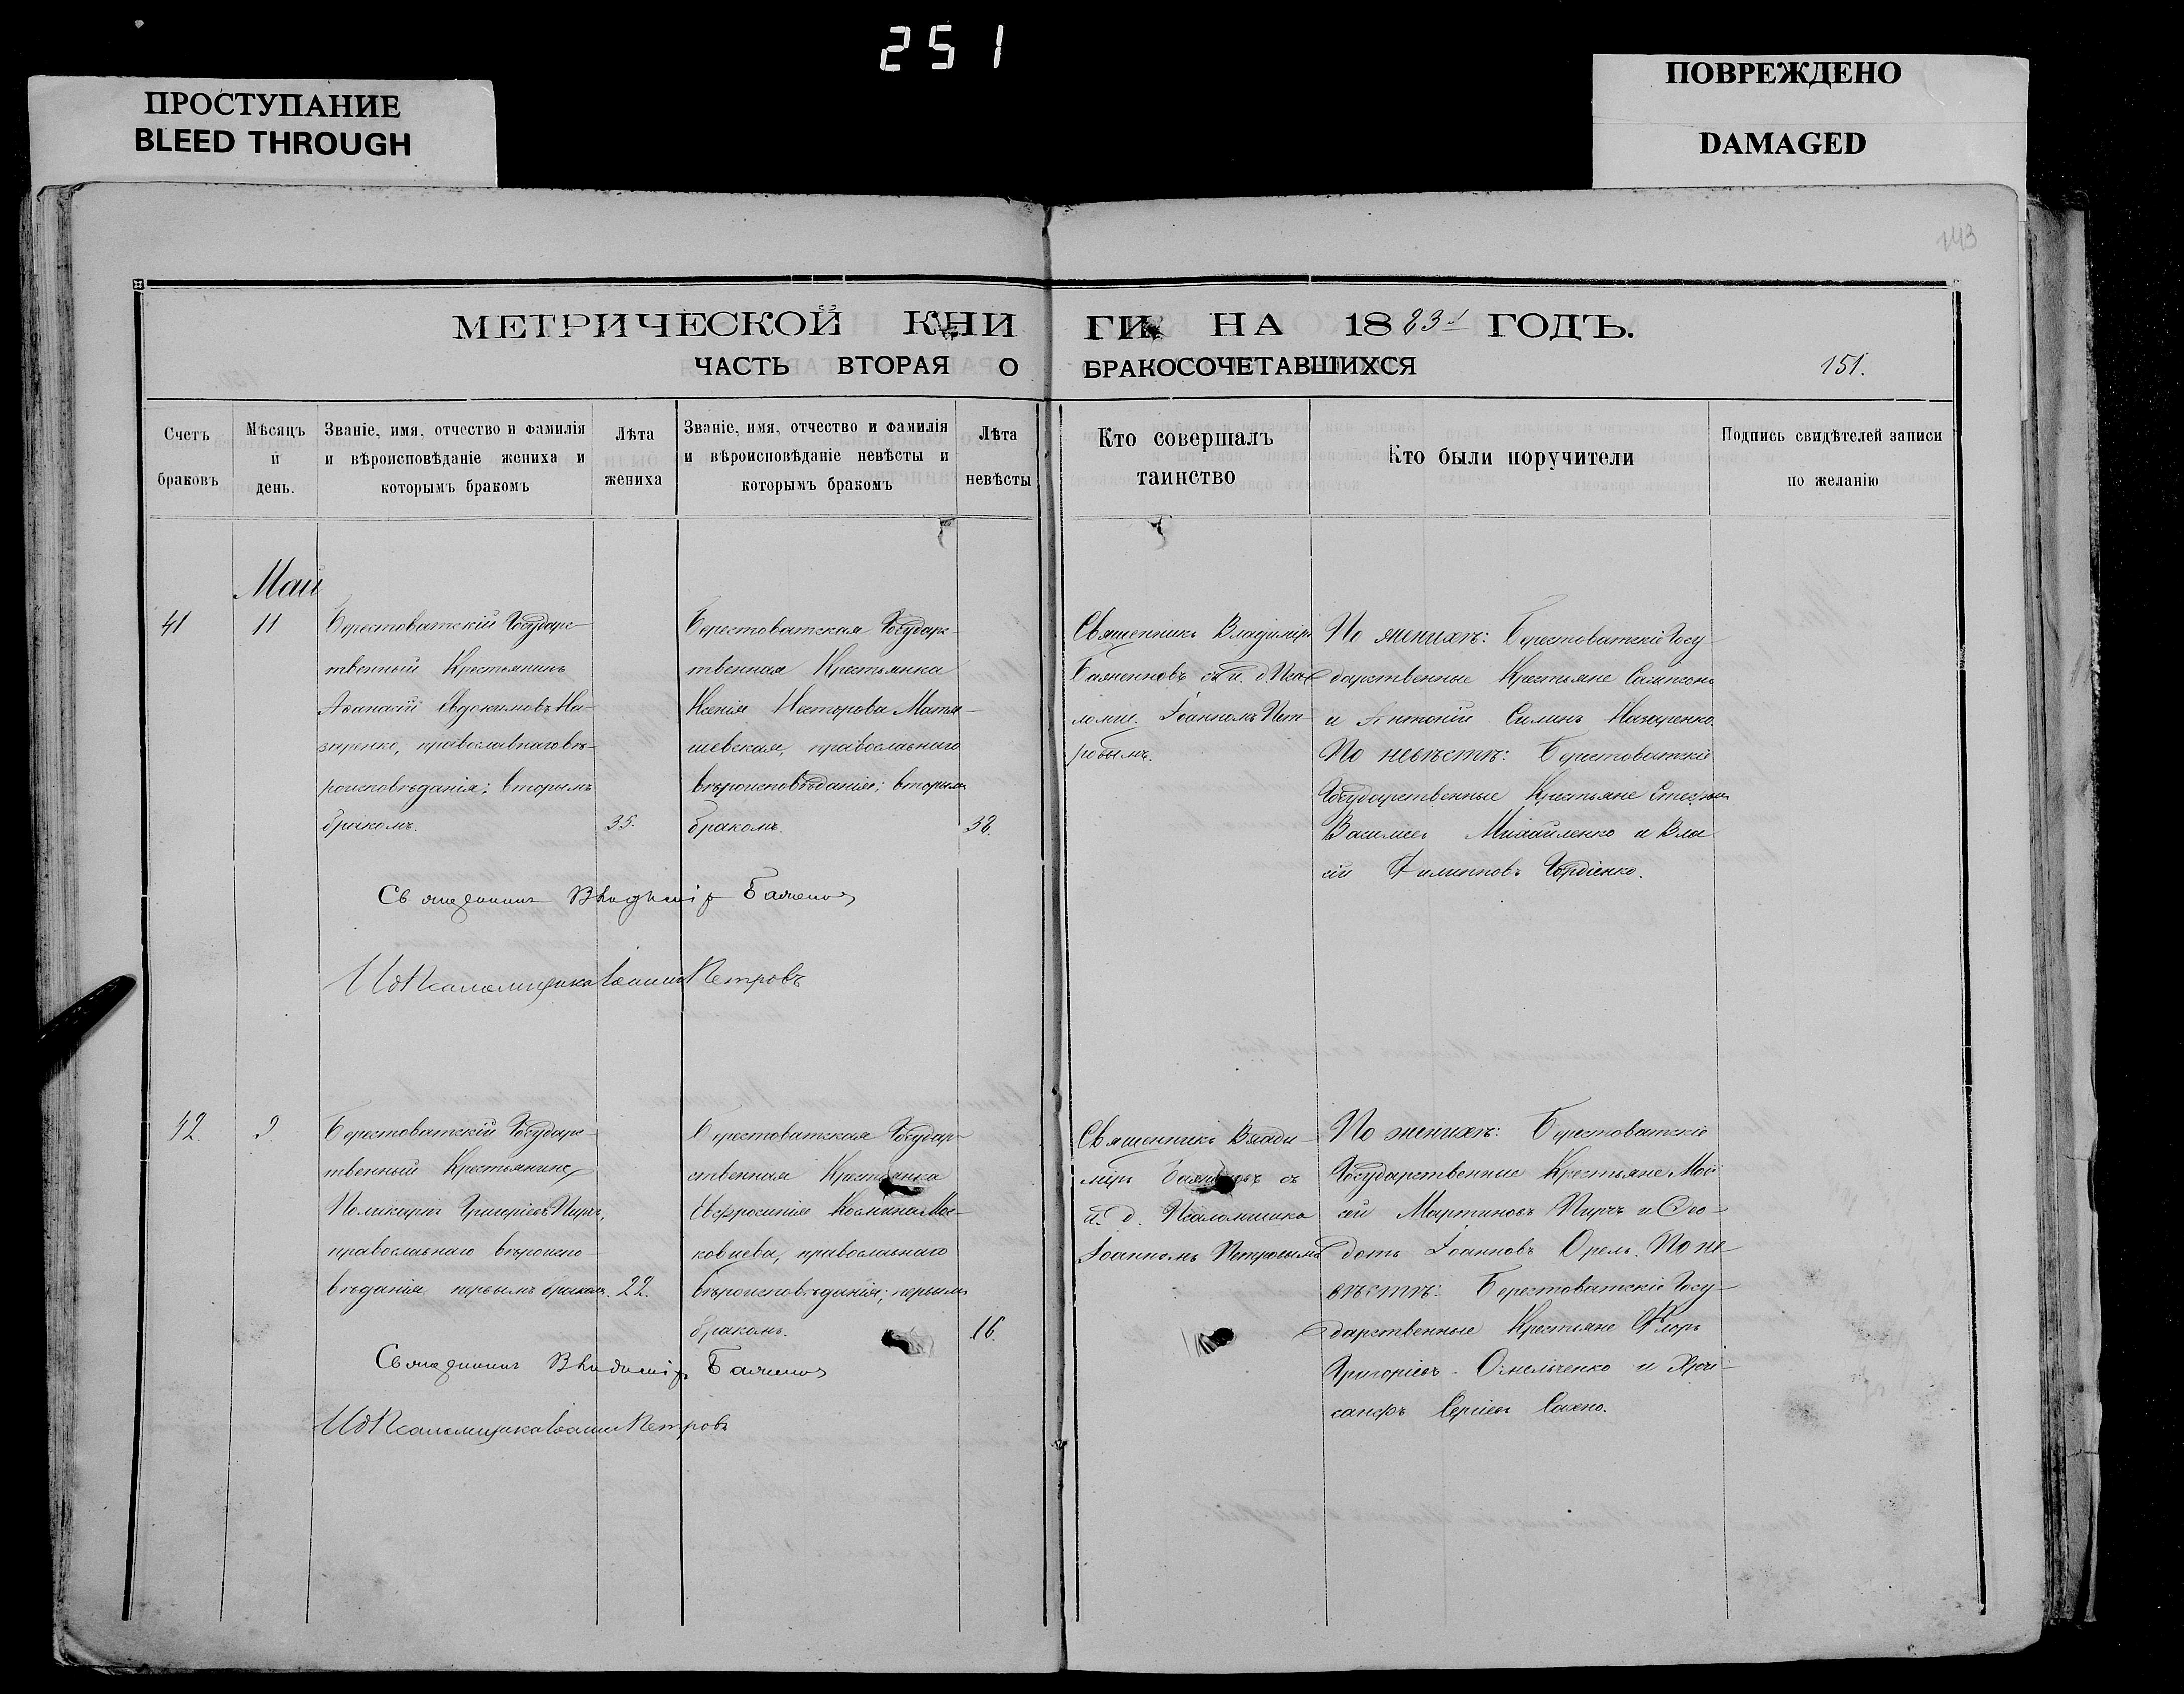 251
ПРОСТУПАНИЕ
BLEED THROUGH
ПОВРЕЖДЕНО
DAMAGED
143
МЕТРИЧЕСКОЙ КНИГИ НА 1883й ГОДЪ.
ЧАСТЬ ВТОРАЯ О БРАКОСОЧЕТАВШИХСЯ
151.
Счетъ
браковъ
Мѣсяцъ
и
день.
Званіе, имя, отчество и фамилія
и вѣроисповѣданіе жениха и
которымъ бракомъ
Лѣта
жениха
Званіе, имя, отчество и фамилія
и вѣроисповѣданіе невѣсты и
которымъ бракомъ
Лѣта
невѣсты
Кто совершалъ
таинство
Кто были поручители
Подпись свидѣтелей записи
по желанію
Май
41
11
Берестоватскій Государс-
твенный Крестьянинъ
Аѳанасій Евдокимовъ На-
заренко, православнаго вѣ-
роисповѣданія; вторымъ
бракомъ.
35.
Берестоватская Государс-
твенная Крестьянка
Ксенія Нестерова Матя-
шевская, православнаго
вѣроисповѣданія; вторымъ
бракомъ.
38.
Священникъ Владиміръ
Баженовъ съ и. д. Пса-
ломщ. Іоанномъ Пет-
ровымъ.
По женихѣ: Берестоватскіе Госу-
дарственные Крестьяне Сампсонъ
и Антоній Силинъ Назаренко.
По невѣстѣ: Берестоватскіе
Государственные Крестьяне Стефанъ
Василіевъ Михайленко и Вла-
сій Филипповъ Гордіенко.
Священникъ Владиміръ Баженовъ
И д Псаломщика Іоаннъ Петровъ
42.
Берестоватскій Государс-
твенный Крестьянинъ
Поликарпъ Григоріевъ Пирчъ,
православнаго вѣроиспо-
вѣданія первымъ бракомъ.
22.
Берестоватская Государ-
ственная Крестьянка
Евфросинія Космина Мос-
ковцева, православнаго
вѣроисповѣданія; первымъ
бракомъ.
16.
Священникъ Влади-
міръ Баженовъ съ
и. д. Псаломщика
Іоанномъ Петровымъ
По женихѣ: Берестоватскіе
Государственные Крестьяне Мои-
сей Мартиновъ Пирчъ и Ѳео-
дотъ Іоанновъ Орелъ. По не-
вѣстѣ: Берестоватскіе Госу-
дарственные Крестьяне Флоръ
Григоріевъ Омельченко и Хри-
санфъ Сергіевъ Сахно.
Священникъ Владиміръ Баженовъ
И д Псаломщика Іоаннъ Петровъ